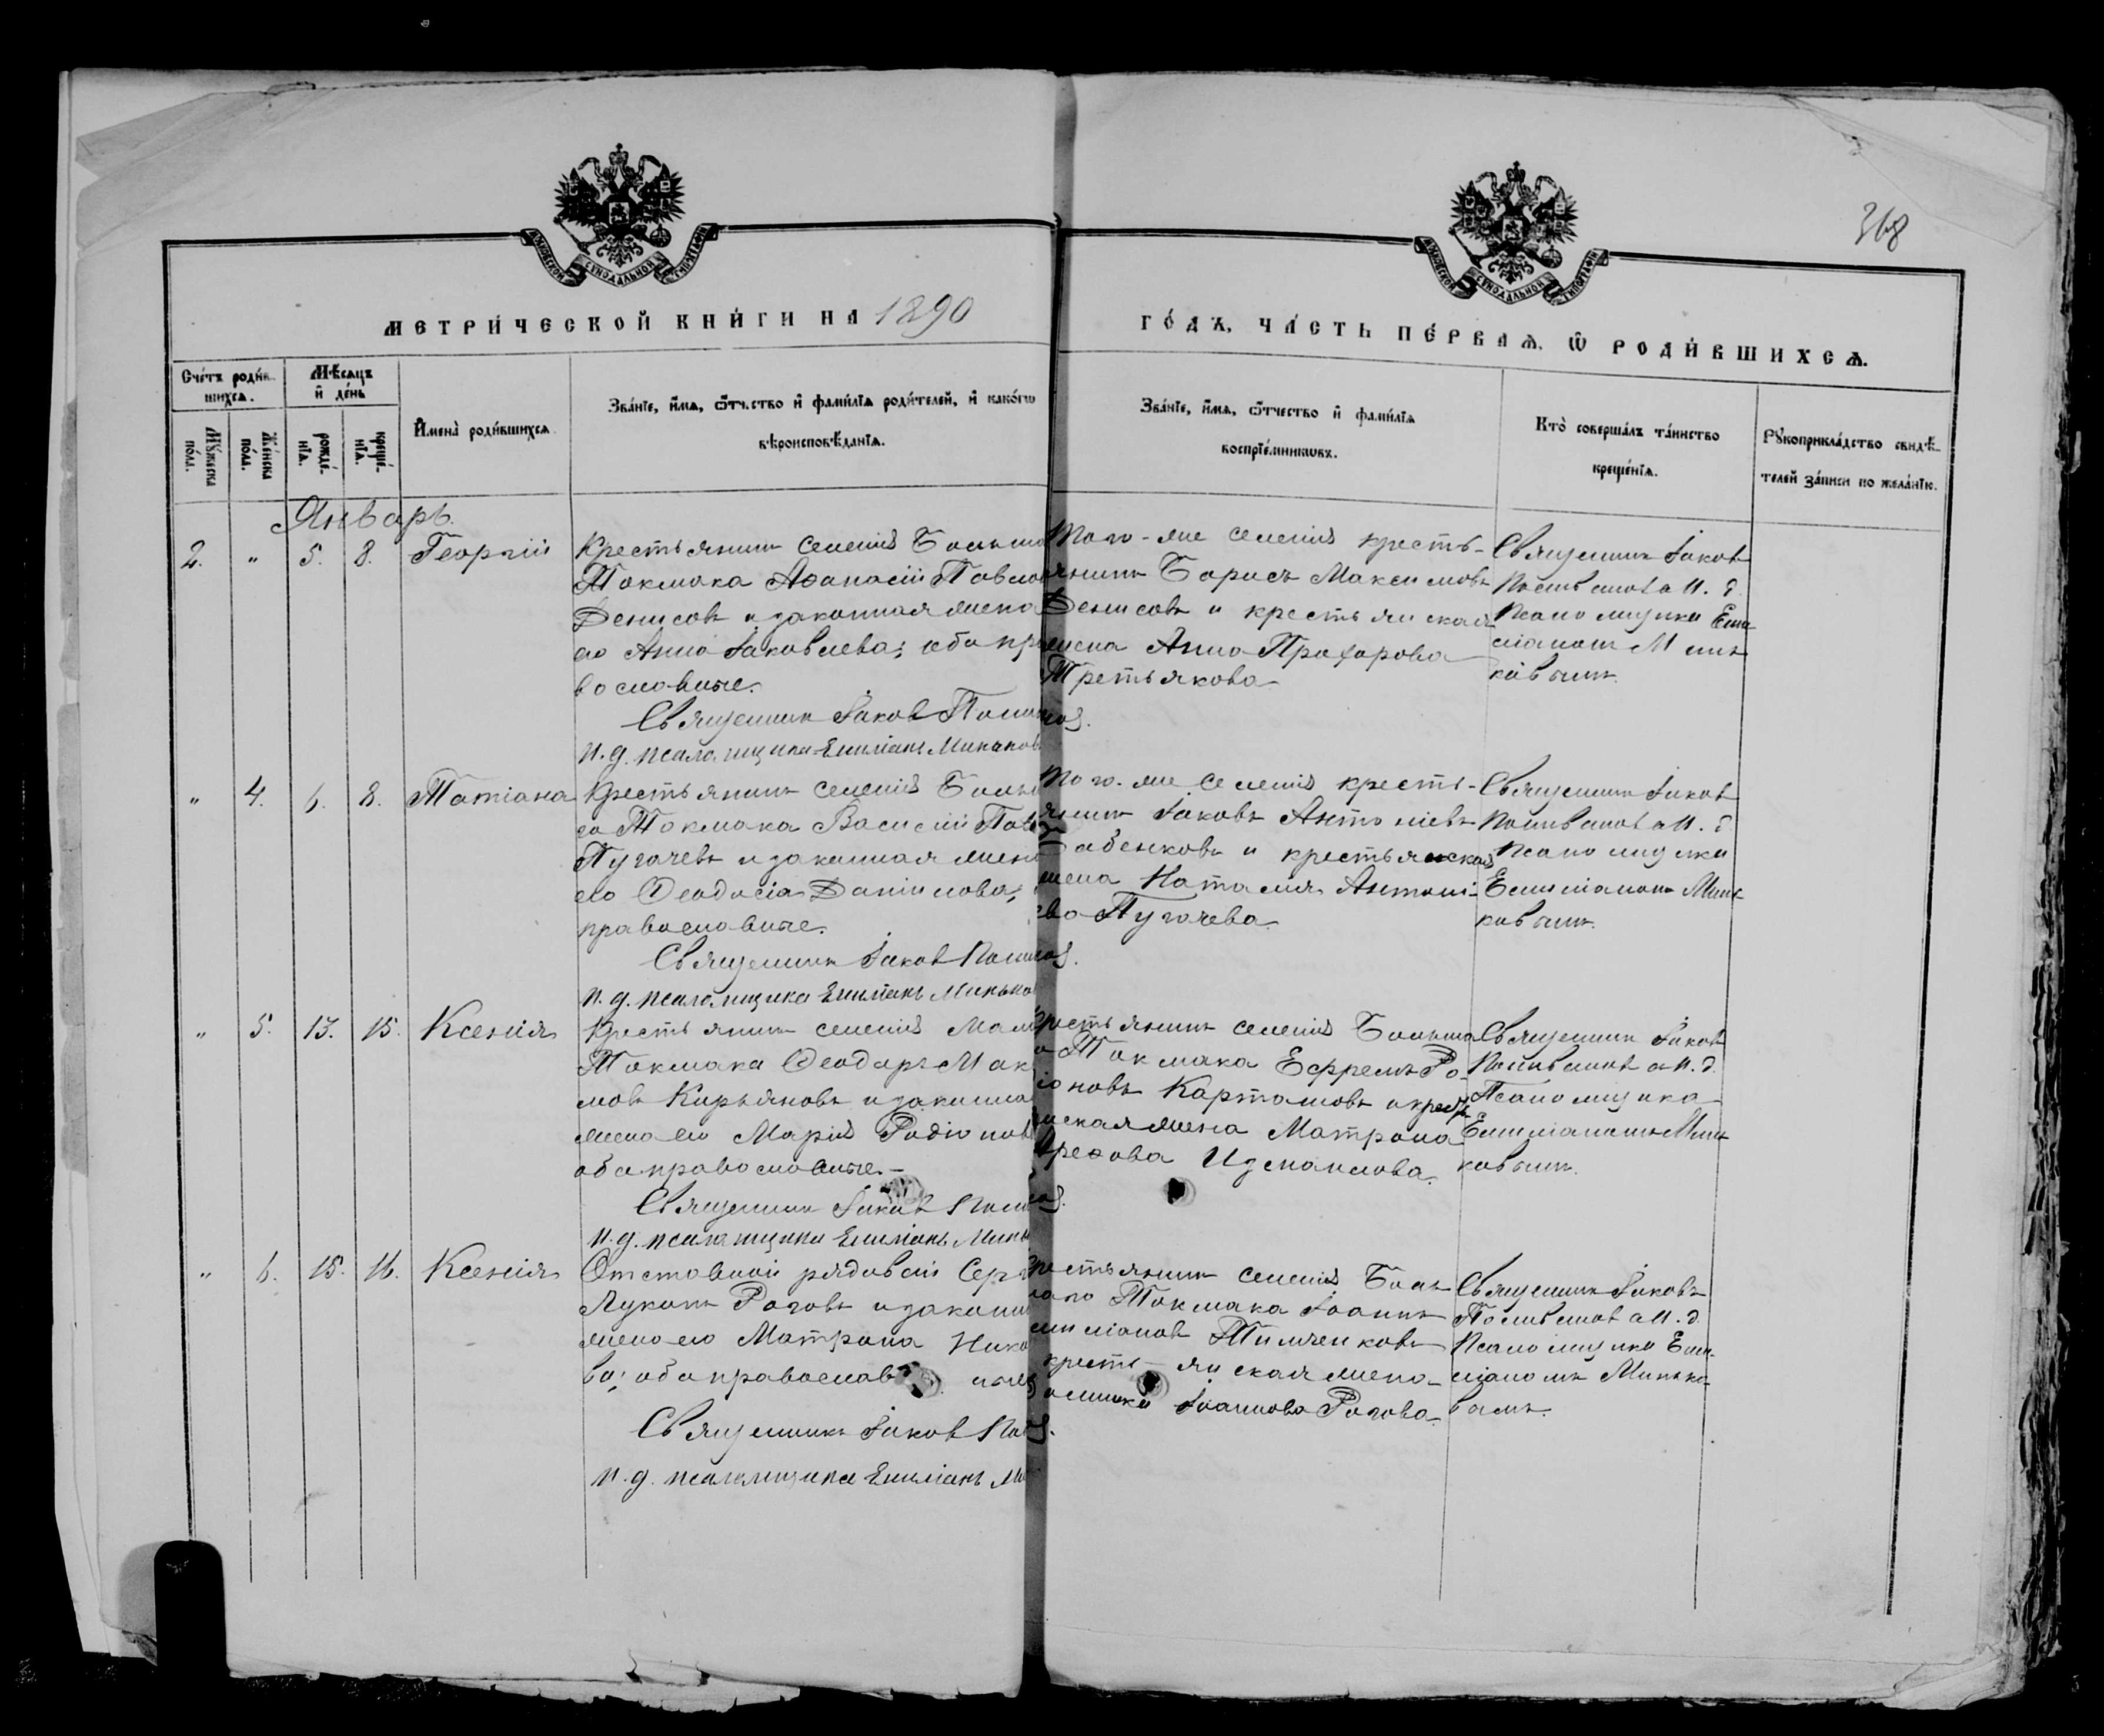 368
МЕТРИ́ЧЕСКОЙ КНИ́ГИ НА 1890
ГО́ДЪ, ЧА́СТЬ ПЕ́РВАѦ, Ѡ РОДИ́ВШИХСѦ.
Сче́тъ роди́в-
шихсѧ.
Мѣ́сѧцъ
и҆ де́нь
Мꙋ́жеска по́ла.
Же́нска по́ла.
рожде́-
нїѧ.
креще́-
нїѧ.
И҆мена̀ роди́вшихсѧ
Зва́нїе, и҆́мѧ, ѻ҆́тчество и҆ фами́лїѧ роди́телей, и҆ како́гѡ
вѣроисповѣ́данїѧ.
Зва́нїе, и҆́мѧ, ѻ҆́тчество и҆ фами́лїѧ
воспрїе́мникѡвъ.
Кто̀ соверша́лъ та́инство
креще́нїѧ.
Рꙋкоприкла́дство свидѣ́-
телей за́писи по жела́нїю.
Январь.
2. " 5. 8. Георгій
Крестьянинъ селенія
Токмака Аѳанасій Павло
Денисовъ и законная жена
его Анна Іаковлева; оба пра
вославные.
Священникъ Іаковъ
и.д. псаломщика Емиліанъ Миньков
Того-же селенія кресть-
янинъ Борисъ Максимовъ
Денисовъ и крестьянская
жена Анна Прохорова
Третьякова
Священникъ Іаковъ
и. д.
Псаломщика Еми-
ліаномъ Минь-
ковымъ.
" 4. 6. 8. Татіана
Крестьянинъ селенія
го Токмака Василій Павл
Пугачевъ и законная жена
его Ѳеодосія Даніилова;
православные.
Священникъ Іаковъ
и.д. псаломщика Емиліанъ Минько
Того-же селенія кресть-
янинъ Іаковъ Антоніевъ
Бабенковъ и крестьянская
жена Наталія Антоні-
ева Пугачева.
Священникъ Іаковъ
и. д.
Псаломщика
Емиліаномъ Минь-
ковымъ.
" 5. 13. 15. Ксенія
Крестьянинъ селенія Мала
Токмака Ѳеодоръ Мак
мовъ Кирьяновъ и законна
жена его Марія Родіонов
оба православные.-
Священникъ Іаковъ
и.д. псаломщика Емиліанъ Минь
крестьянинъ селенія Больша
го Токмака Ефремъ Ро-
діоновъ Карташовъ и кресть
янская жена Матрона
Ареѳова Измаилова.
Священникъ Іаковъ
и. д.
Псаломщика
Емиліаномъ Минь-
ковымъ.
" 6. 15. 16. Ксенія
Отставной рядовой Серг
Лукинъ Роговъ и законн
жена его Матрона Нико
ва; оба православные
Священникъ Іаковъ
и.д. псаломщика Емиліанъ Ми
крестьянинъ селенія Боль
шаго Токмака Іоаннъ
Емиліановъ Тимченковъ
крестьянская жена
Іоаннова Рогова.
Священникъ Іаковъ
и. д.
Псаломщика Еми-
ліаномъ Минько-
вымъ.